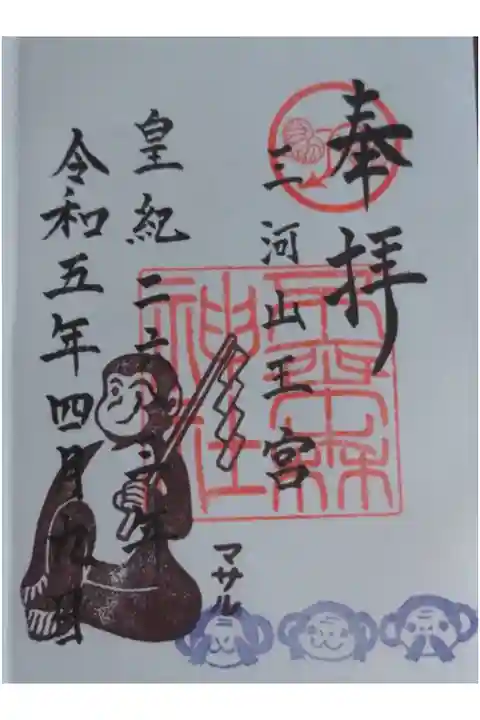 奉拝
三河山王宮
神社
皇紀二六八三年
令和五年四月九日
マサル